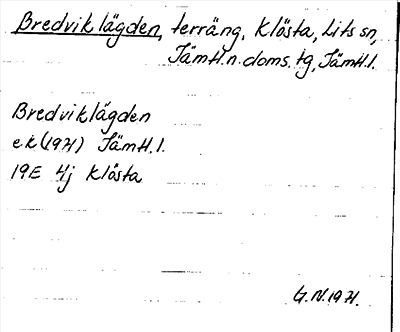 Bredviklägden, terräng, Klösta, Lits sn,
Jämtl.n.doms.tg, Jämtl.l.
Bredviklägden
e.k (1971) Jämtl.l.
19E 4j Klösta
G.N. 1971.